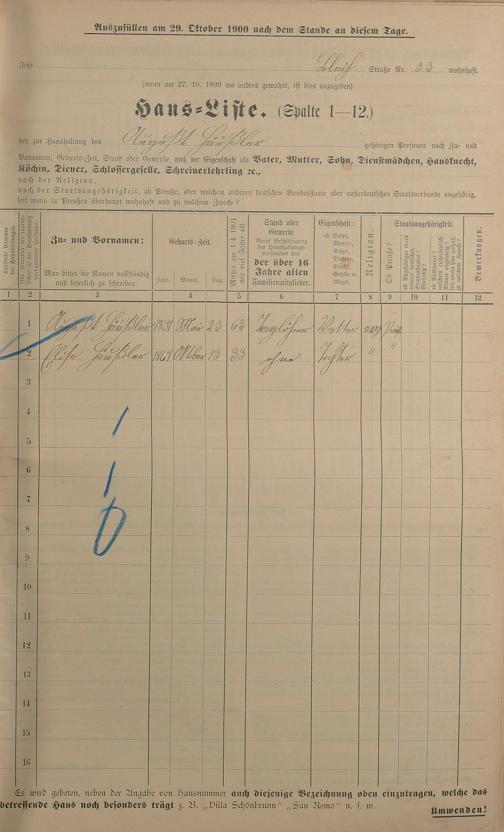 Auszufüllen am 29. Oktober 1900 nach dem Stande an diesem Tage.
Jetzt Bleich Straße Nr. 33 wohnhaft.
(wenn am 27. 10. 1899 wo anders gewohnt, ist dies anzugeben)
Haus=Liste. (Spalte 1—12.)
der zur Haushaltung des August Häußler gehörigen Personen nach Zu- und
Vornamen, Geburts-Zeit, Stand oder Gewerbe, nach der Eigenschaft als Vater, Mutter, Sohn, Dienstmädchen, Hausknecht,
Köchin, Diener, Schlossergeselle, Schreinerlehrling ꝛc.,
nach der Religion,
nach der Staatsangehörigkeit, ob Preuße, oder welchem anderen deutschen Bundesstaate oder außerdeutschen Staatsverbande angehörig,
seit wann in Preußen überhaupt wohnhaft und zu welchem Zwecke?
Zu- und Vornamen:
Man bittet die Namen vollständig
und leserlich zu schreiben.
Geburts-Zeit.
Jahr. Monat. Tag.
Stand oder
Gewerbe
der über 16
Jahre alten
Familienmitglieder.
Eigenschaft:
ob Vater,
Mutter,
Sohn,
Tochter,
Religion.
Staatsangehörigkeit.
Ob Preuße?
Bemerkungen.
1 2 3 4 5 6 7 8 9 10 11 12
1 August Häußler 1837 Mai 23 63 Taglöhner Vatter evg
2 Elise Häußler 1867 Oktber 13 33 ohne Tochter " "
3
4
5
6
7
8
9
10
11
12
13
14
15
16
Es wird gebeten, neben der Angabe von Hausnummer auch diejenige Bezeichnung oben einzutragen, welche das
betreffende Haus noch besonders trägt z. B. „Villa Schönbrunn" „San Remo" u. s. w.
Umwenden!